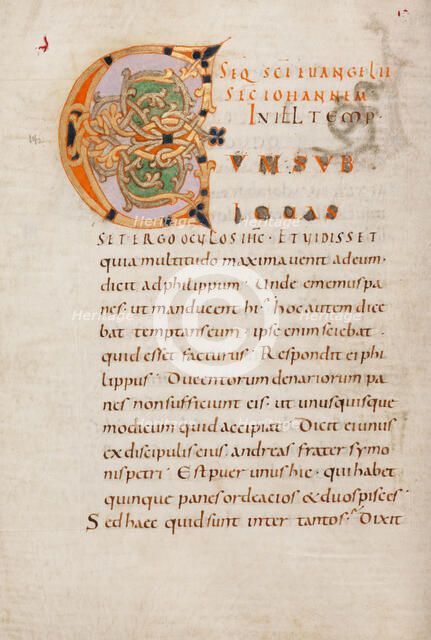 SEQ SCI EUANGELII
SEC IOHANNEM
IN ILL TEMP
C UM SUB
LEUAS
SET ERGO OCULOS IHC · ET VIDISSET
quia multitudo maxima uenit ad eum ·
dicit ad philippum · Unde ememus pa
nes · ut manducent hi · hoc autem dice
bat temptans eum · ipse enim sciebat ·
quid esset facturus · Respondit ei phi
lippus · Ducentorum denariorum pa
nes non sufficiunt eis · ut unusquisque
modicum quid accipiat · Dicit ei unus
ex discipulis eius · andreas frater symo
nis petri · Est puer unus hic · qui habet
quinque panes ordeacios & duos pisces ·
Sed haec quid sunt inter tantos · Dixit
Heritage
Heritage
Heritage
Heritage
Heritage